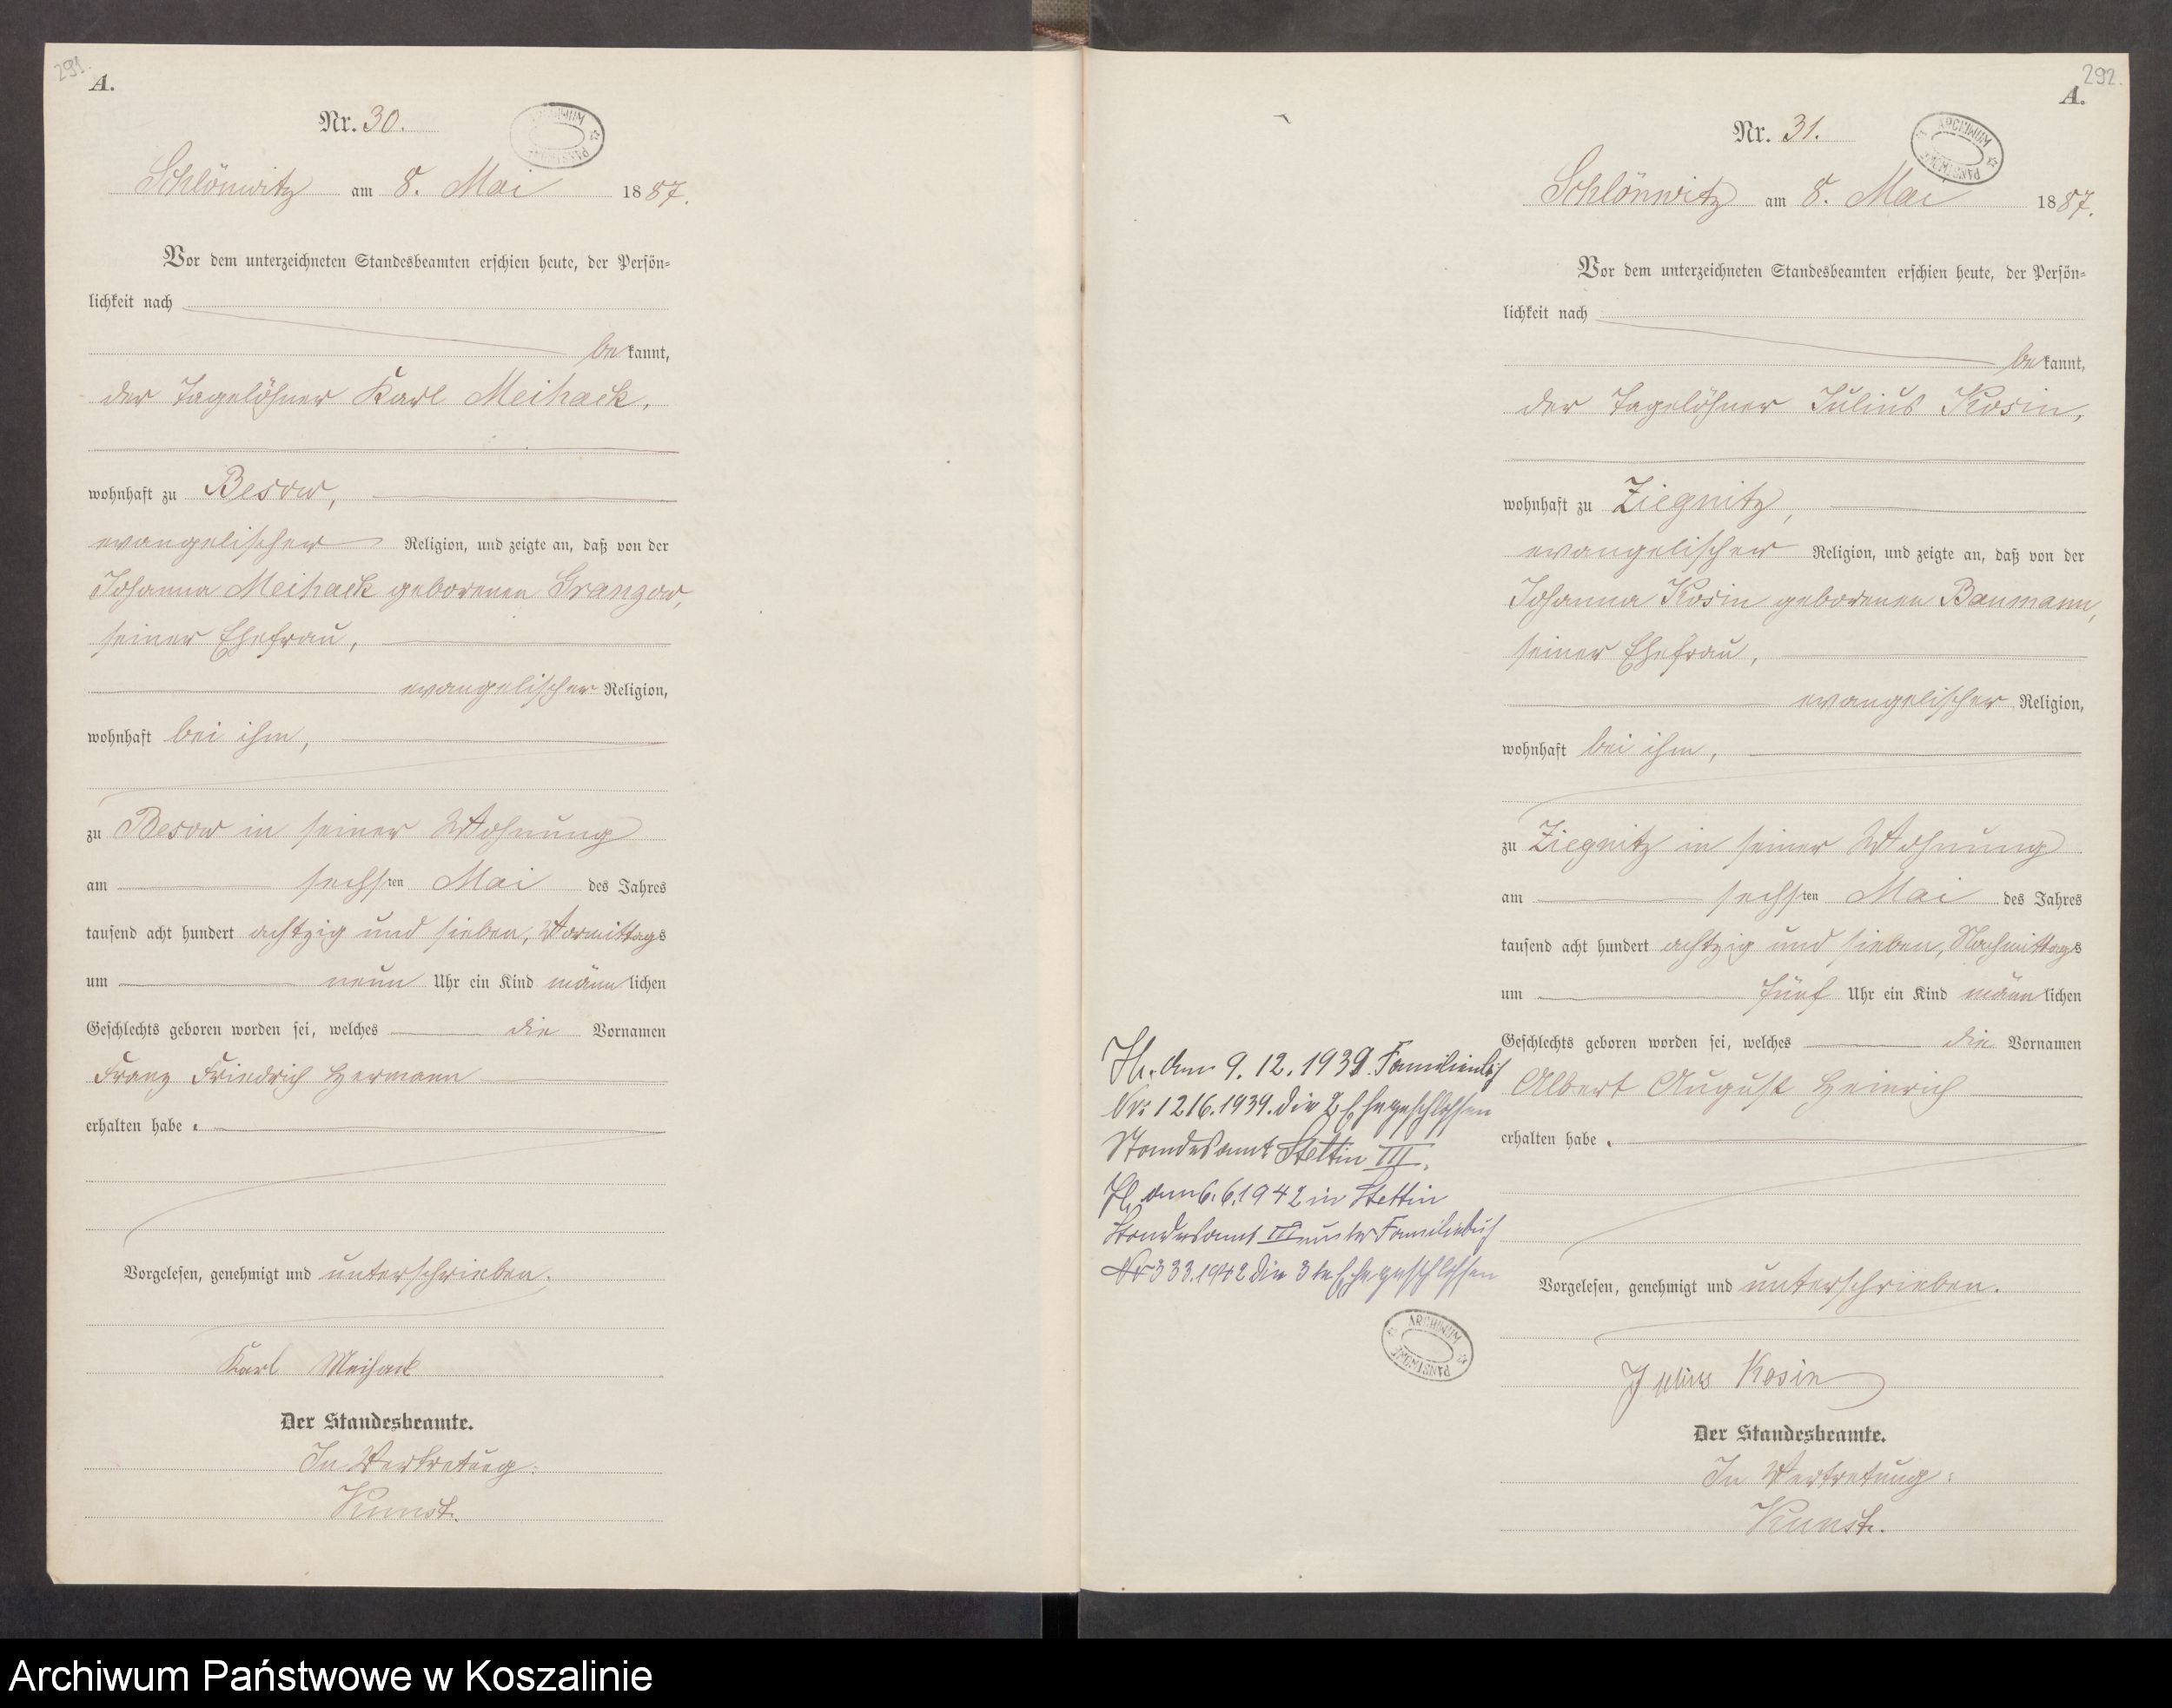 291.
A.
Nr. 30.
ARCHIWUM PAŃSTWOWE
Schlönwitz am 8. Mai 1887.
Vor dem unterzeichneten Standesbeamten erschien heute, der Persön-
lichkeit nach
bekannt,
der Tagelöhner Karl Meihack,
wohnhaft zu Besow,
evangelischer Religion, und zeigte an, daß von der
Johanna Meihack geborenen Granzow,
seiner Ehefrau,
evangelischer Religion,
wohnhaft bei ihm,
zu Besow in seiner Wohnung
am sechsten Mai des Jahres
tausend acht hundert achtzig und sieben, Vormittags
um neun Uhr ein Kind männlichen
Geschlechts geboren worden sei, welches die Vornamen
Franz Friedrich Hermann
erhalten habe.
Vorgelesen, genehmigt und unterschrieben.
Karl Meihack
Der Standesbeamte.
In Vertretung:
Kunst.
292.
A.
Nr. 31.
ARCHIWUM PAŃSTWOWE
Schlönwitz am 8. Mai 1887.
Vor dem unterzeichneten Standesbeamten erschien heute, der Persön-
lichkeit nach
bekannt,
der Tagelöhner Julius Kosin,
wohnhaft zu Ziegnitz,
evangelischer Religion, und zeigte an, daß von der
Johanna Kosin geborenen Baumann,
seiner Ehefrau,
evangelischer Religion,
wohnhaft bei ihm,
zu Ziegnitz in seiner Wohnung
am sechsten Mai des Jahres
tausend acht hundert achtzig und sieben, Nachmittags
um fünf Uhr ein Kind männlichen
Geschlechts geboren worden sei, welches die Vornamen
Albert August Heinrich
erhalten habe.
Vorgelesen, genehmigt und unterschrieben.
Julius Kosin
Der Standesbeamte.
In Vertretung:
Kunst.
am 9. 12. 1939. Familienbuch
Nr. 1216.1939. die 2 Ehe geschlossen
Standesamt Stettin III.
am 6.6.1942 in Stettin
Standesamt III unter Familienbuch
Nr 333.1942 die 3te Ehe geschlossen
ARCHIWUM PAŃSTWOWE
Archiwum Państwowe w Koszalinie